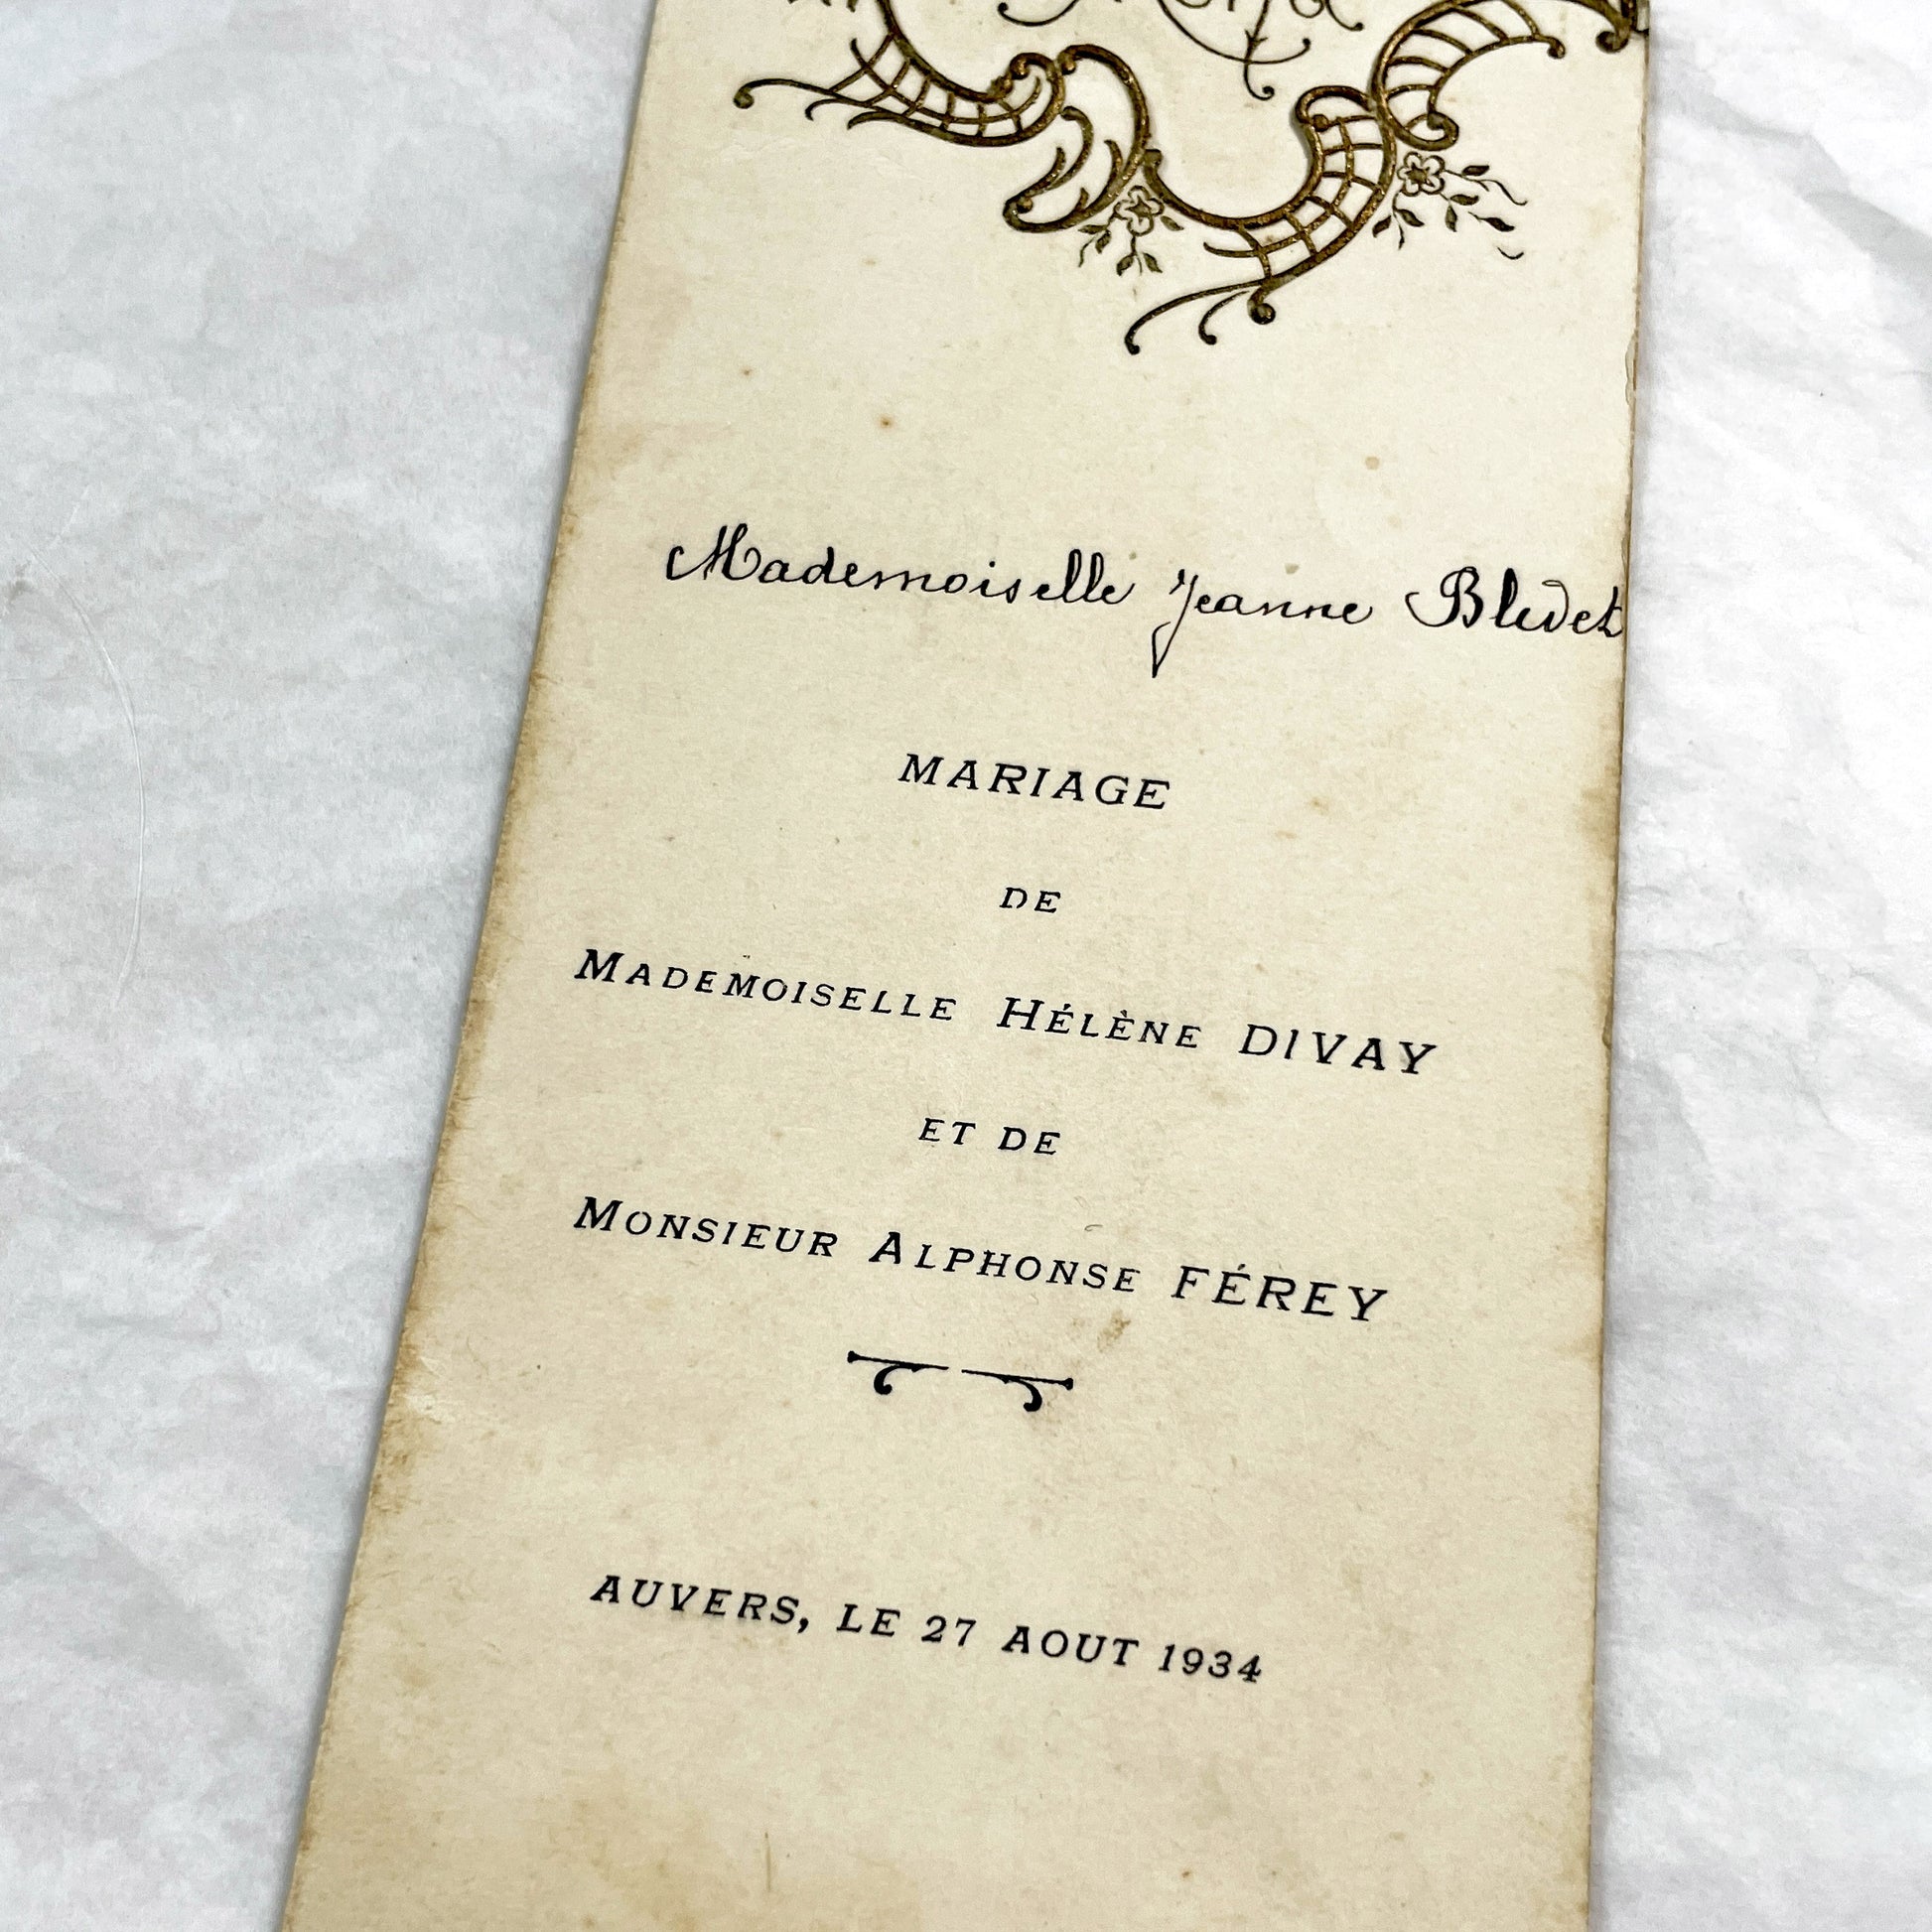 Mademoiselle Jeanne Bledet
MARIAGE
DE
MADEMOISELLE HÉLÈNE DIVAY
ET DE
MONSIEUR ALPHONSE FÉREY
AUVERS, LE 27 AOUT 1934